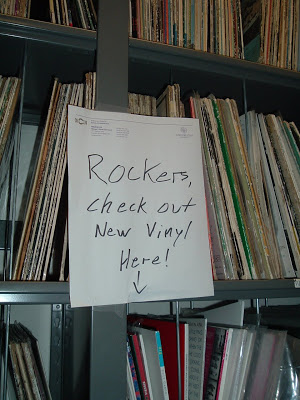 Rockers,
check out
New Vinyl
Here!
↓